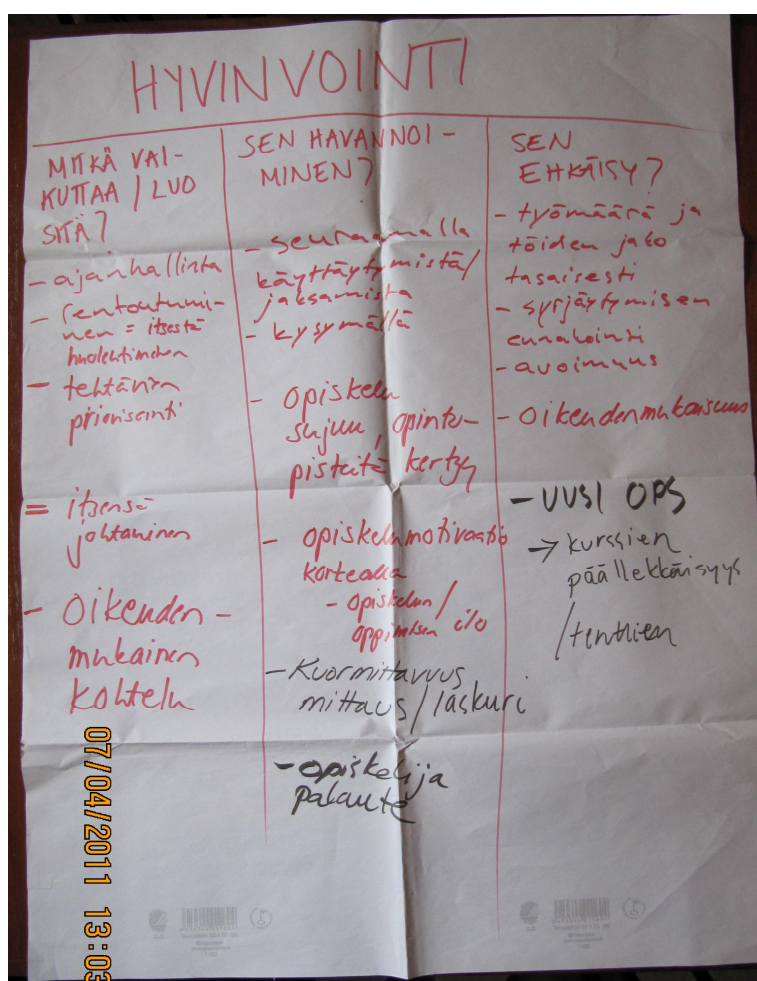 HYVINVOINTI
MITKÄ VAI-
KUTTAA / LUO
SITÄ?
- ajanhallinta
- rentoutumi-
nen = itsestä
huolehtiminen
- tehtävien
priorisointi
= itsensä
johtaminen
- Oikeuden-
mukainen
kohtelu
SEN HAVANNOI-
MINEN?
- seuraamalla
käyttäytymistä/
jaksamista
- kysymällä
- opiskelu
sujuu, opinto-
pisteitä kertyy
- opiskelumotivaatio
korkealla
- opiskelun/
oppimisen ilo
- Kuormittavuus
mittaus/laskuri
- opiskelija
palaute
SEN
EHKÄISY?
- työmäärä ja
töiden jako
tasaisesti
- syrjäytymisen
ennakointi
- avoimuus
- oikeudenmukaisuus
- UUSI OPS
→ kurssien
päällekkäisyys
/tenttien
07/04/2011 13:03